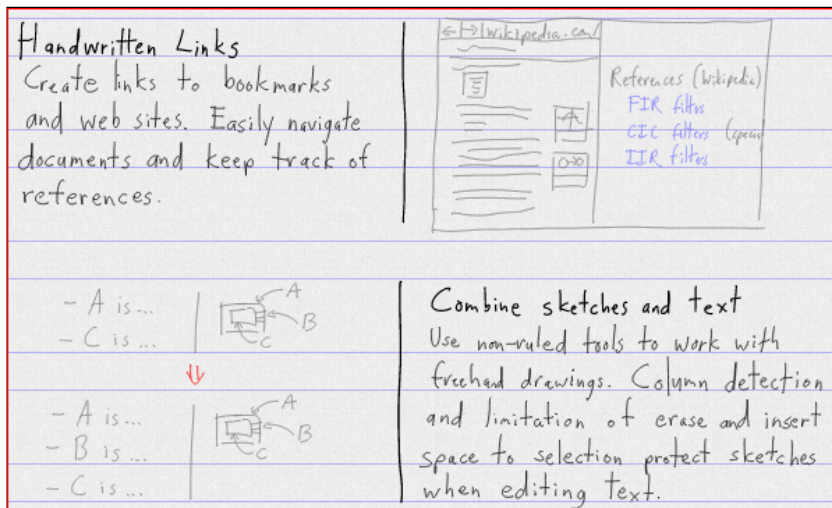 Handwritten Links
Create links to bookmarks
and web sites. Easily navigate
documents and keep track of
references.
wikipedia.com/
References (Wikipedia)
FIR filters
CIC filters
IIR filters
- A is...
- C is...
A
B
C
- A is...
- B is...
- C is...
A
B
C
Combine sketches and text
Use non-ruled tools to work with
freehand drawings. Column detection
and limitation of erase and insert
space to selection protect sketches
when editing text.